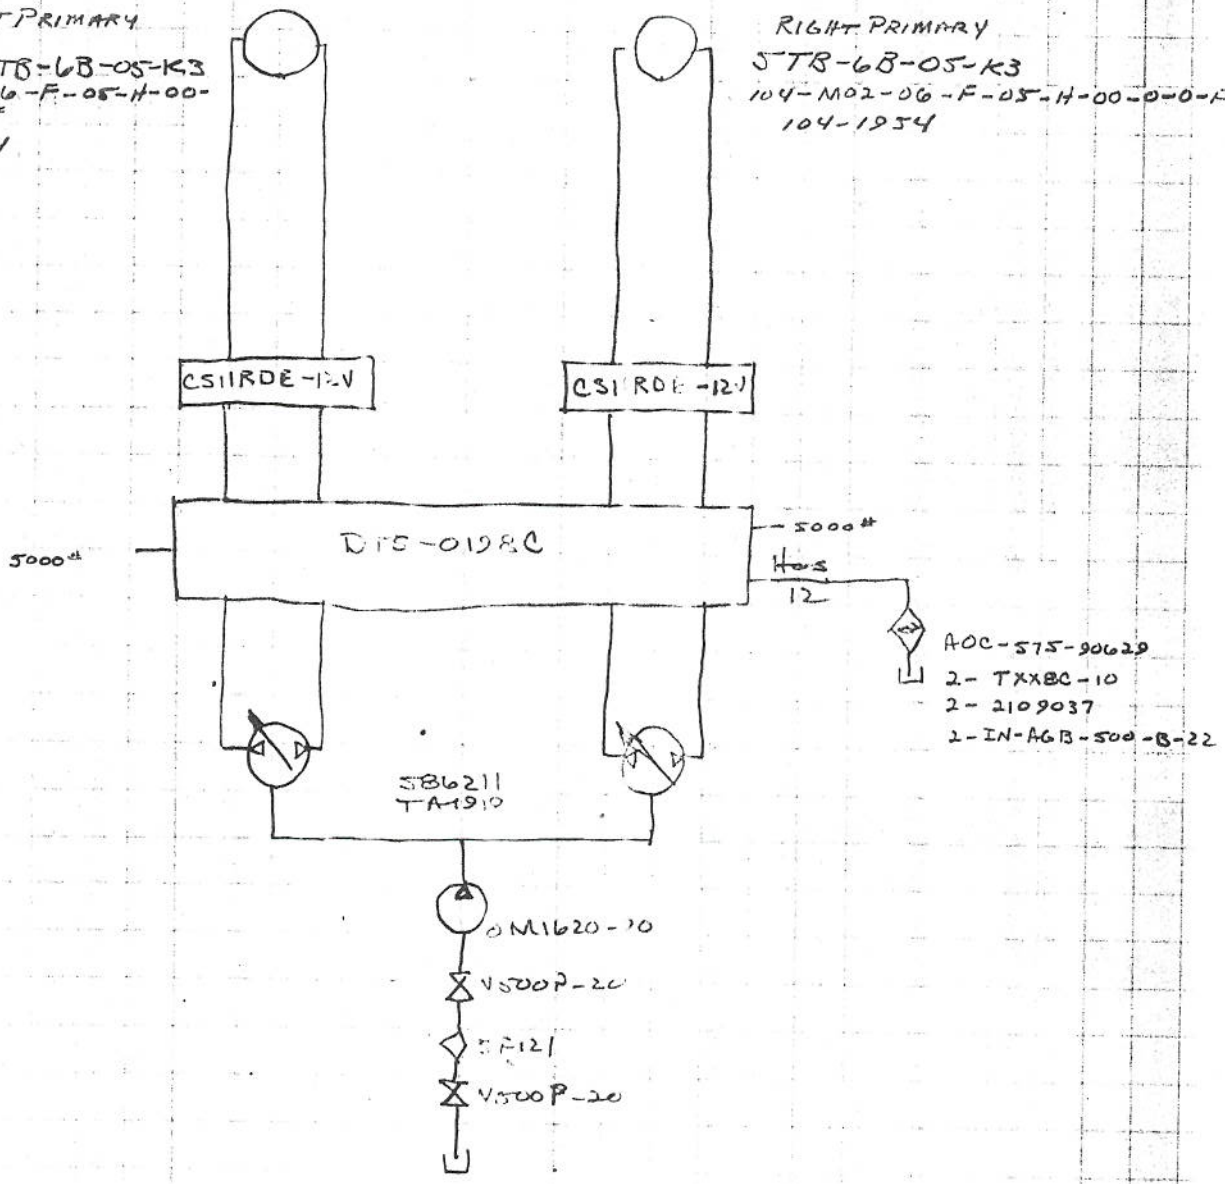 T PRIMARY
TB-6B-05-K3
6-F-05-H-00-
RIGHT PRIMARY
5TB-6B-05-K3
104-M02-06-F-05-H-00-0-0-F
104-1954
CS11RDE-12V
CS11RDE-12V
5000#
5000#
H05
12
AOC-575-90629
2- TXXBC-10
2- 2109037
2-IN-AGB-500-B-22
586211
TA1910
V500P-20
SF121
V500P-20